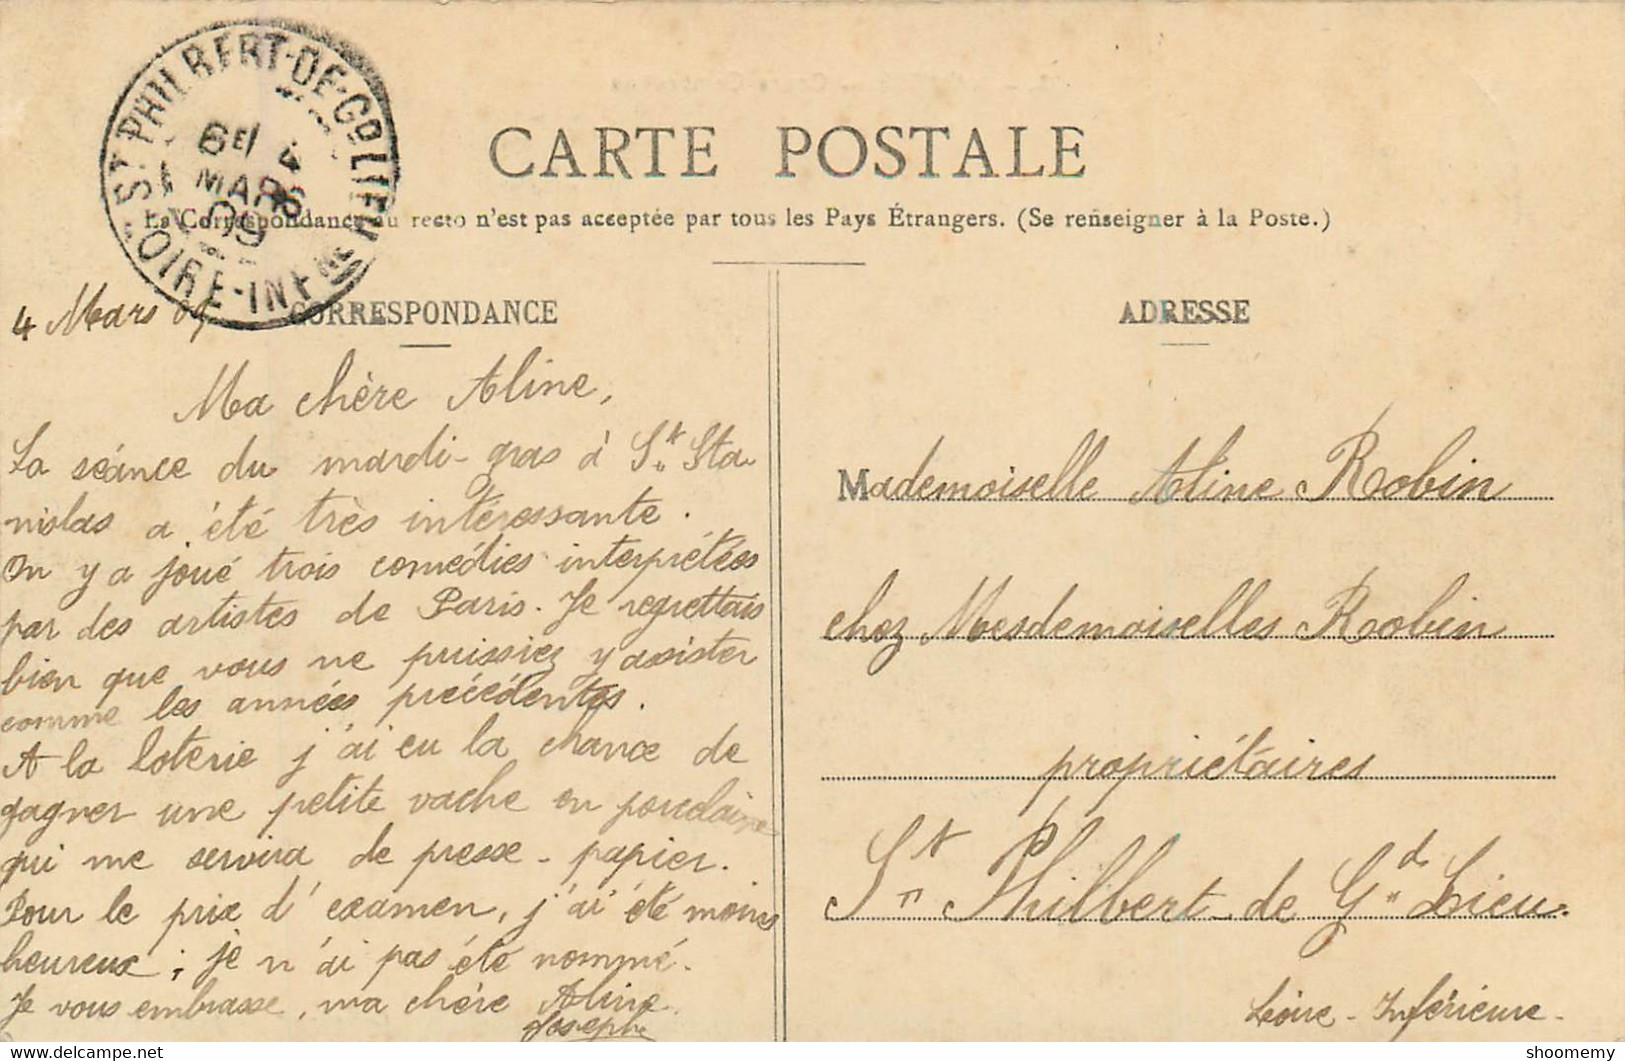 ST PHILBERT-DE-GD LIEU
6E/ 4
MARS
09
LOIRE-INFRE
CARTE POSTALE
La Correspondance au recto n'est pas acceptée par tous les Pays Étrangers. (Se renseigner à la Poste.)
CORRESPONDANCE
4 Mars 09
Ma chère Aline,
La séance du mardi-gras à St Sta
nislas a été très intéressante.
On y a joué trois comédies interprétées
par des artistes de Paris. Je regrettais
bien que vous ne puissiez y assister
comme les années précédentes.
A la loterie j'ai eu la chance de
gagner une petite vache en porcelaine
qui me servira de presse-papier.
Pour le prix d'examen, j'ai été moins
heureux; je n'ai pas été nommé.
Je vous embrasse, ma chère Aline.
Joseph
ADRESSE
Mademoiselle Aline Robin
chez Mesdemoiselles Robin
propriétaires
St Philbert de Gd Lieu.
Loire-Inférieure-
shoomemy
delcampe.net